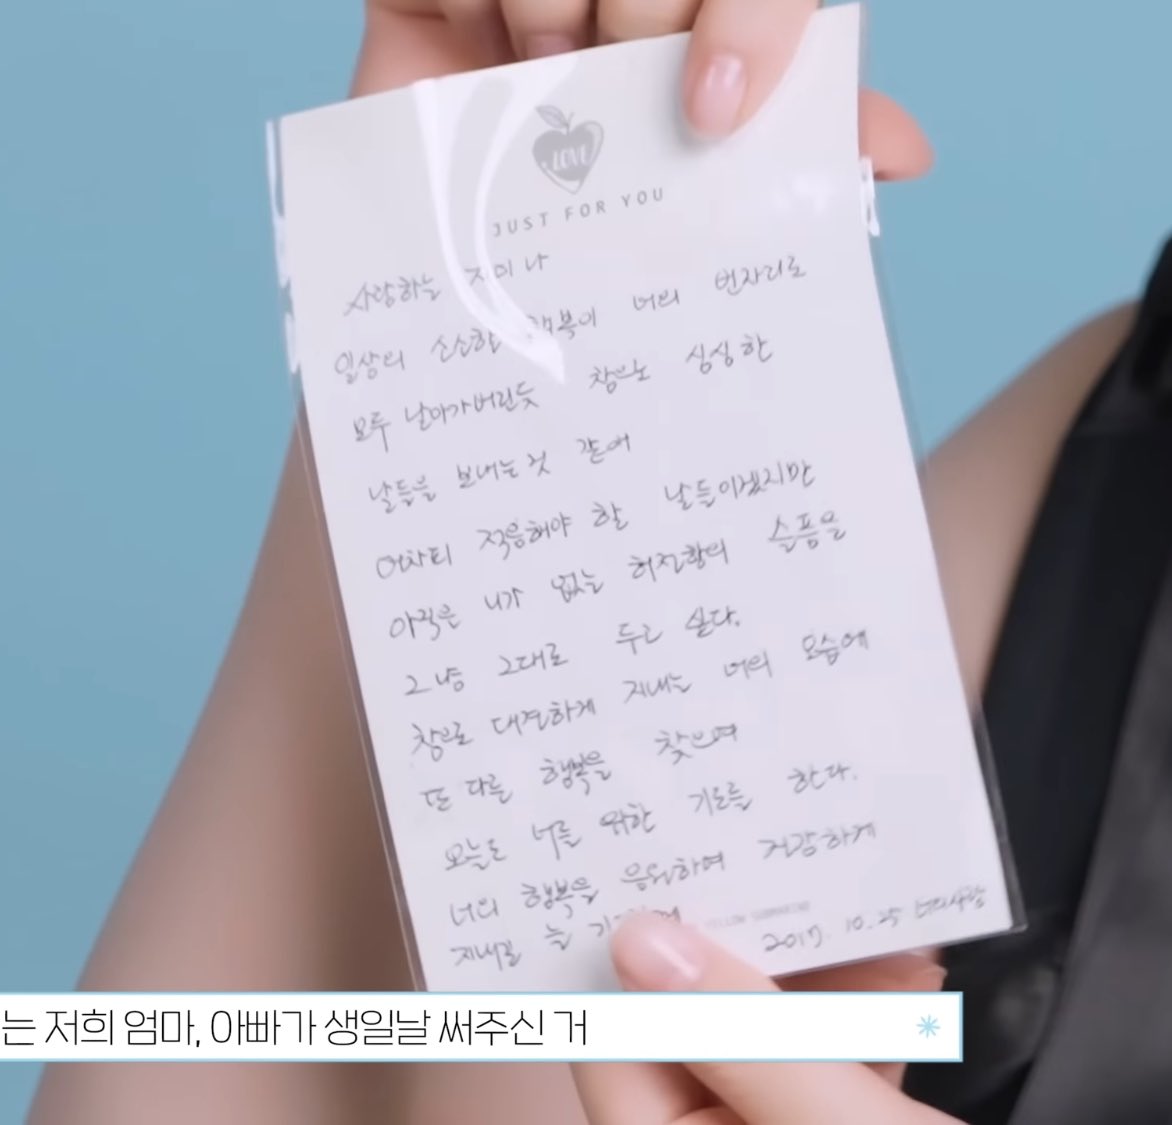 LOVE
JUST FOR YOU
사랑하는 지미나
일상의 소소한 행복이 너의 빈자리로
모두 날아가버린듯 참으로 심심한
날들을 보내는것 같애
어차피 적응해야 할 날들이겠지만
아직은 니가 없는 허전함의 슬픔을
그냥 그대로 두고 싶다.
참으로 대견하게 지내는 너의 모습에
또 다른 행복을 찾으며
오늘도 너를 위한 기도를 한다.
너의 행복을 응원하며 건강하게
지내길 늘
YELLOW SUBMARINE
2017. 10. 25 너의사랑
는 저희 엄마, 아빠가 생일날 써주신 거